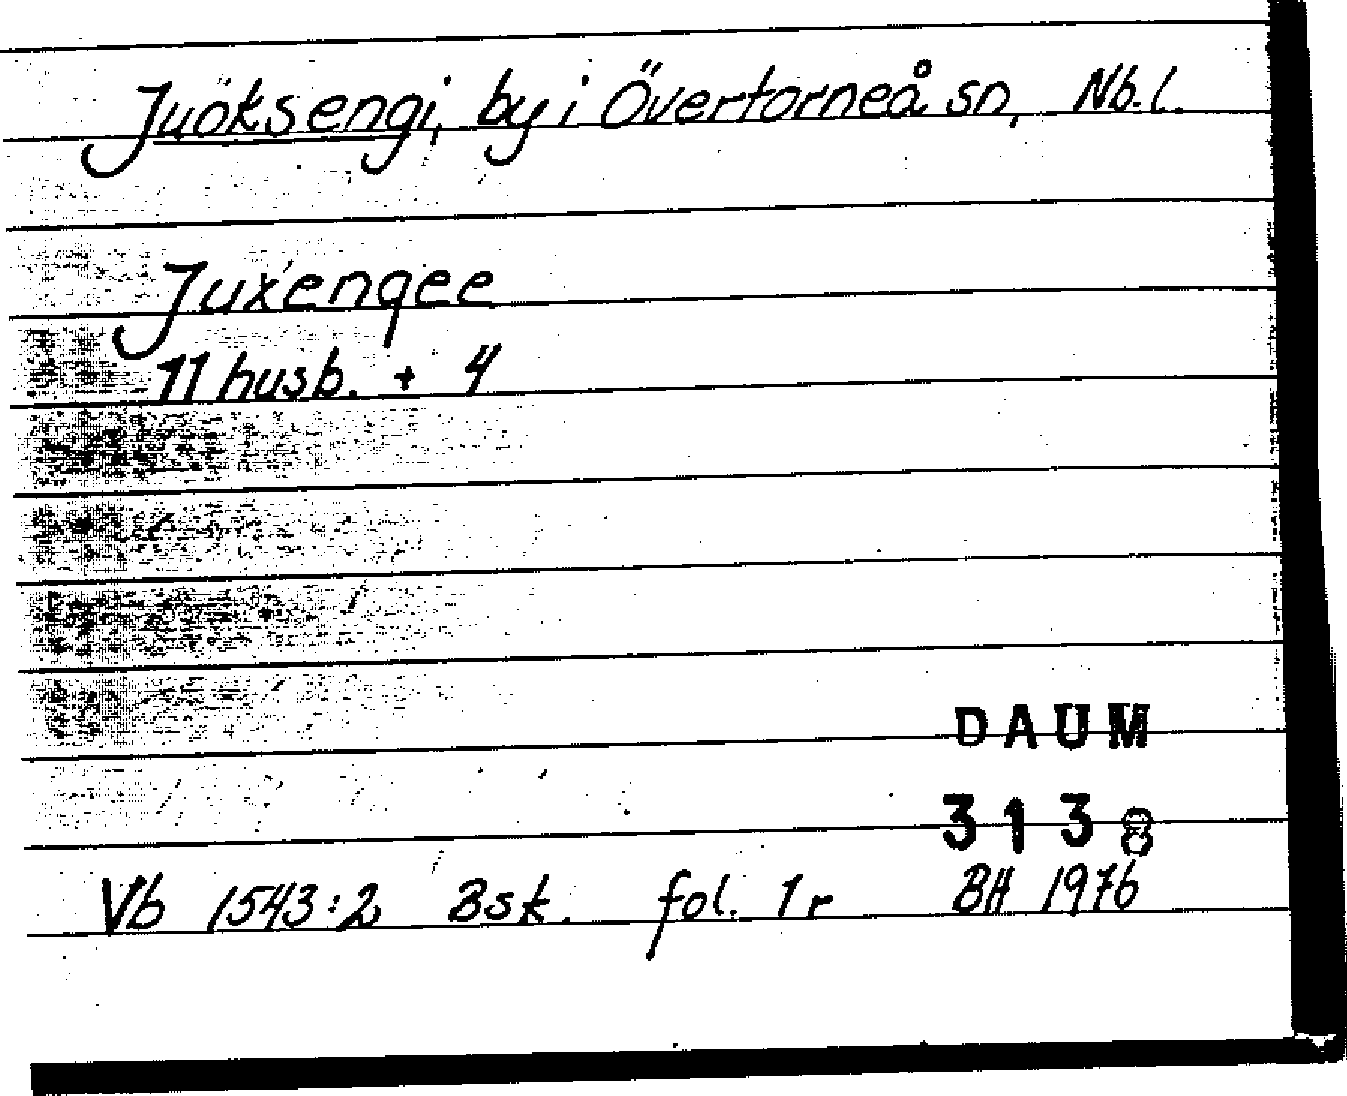 Juöksengi, by i Övertorneå sn, Nb.l.
Juxengee
11 husb. + 4
DAUM
3138
Vb 1543:2 Bsk. fol. 1r BH 1976